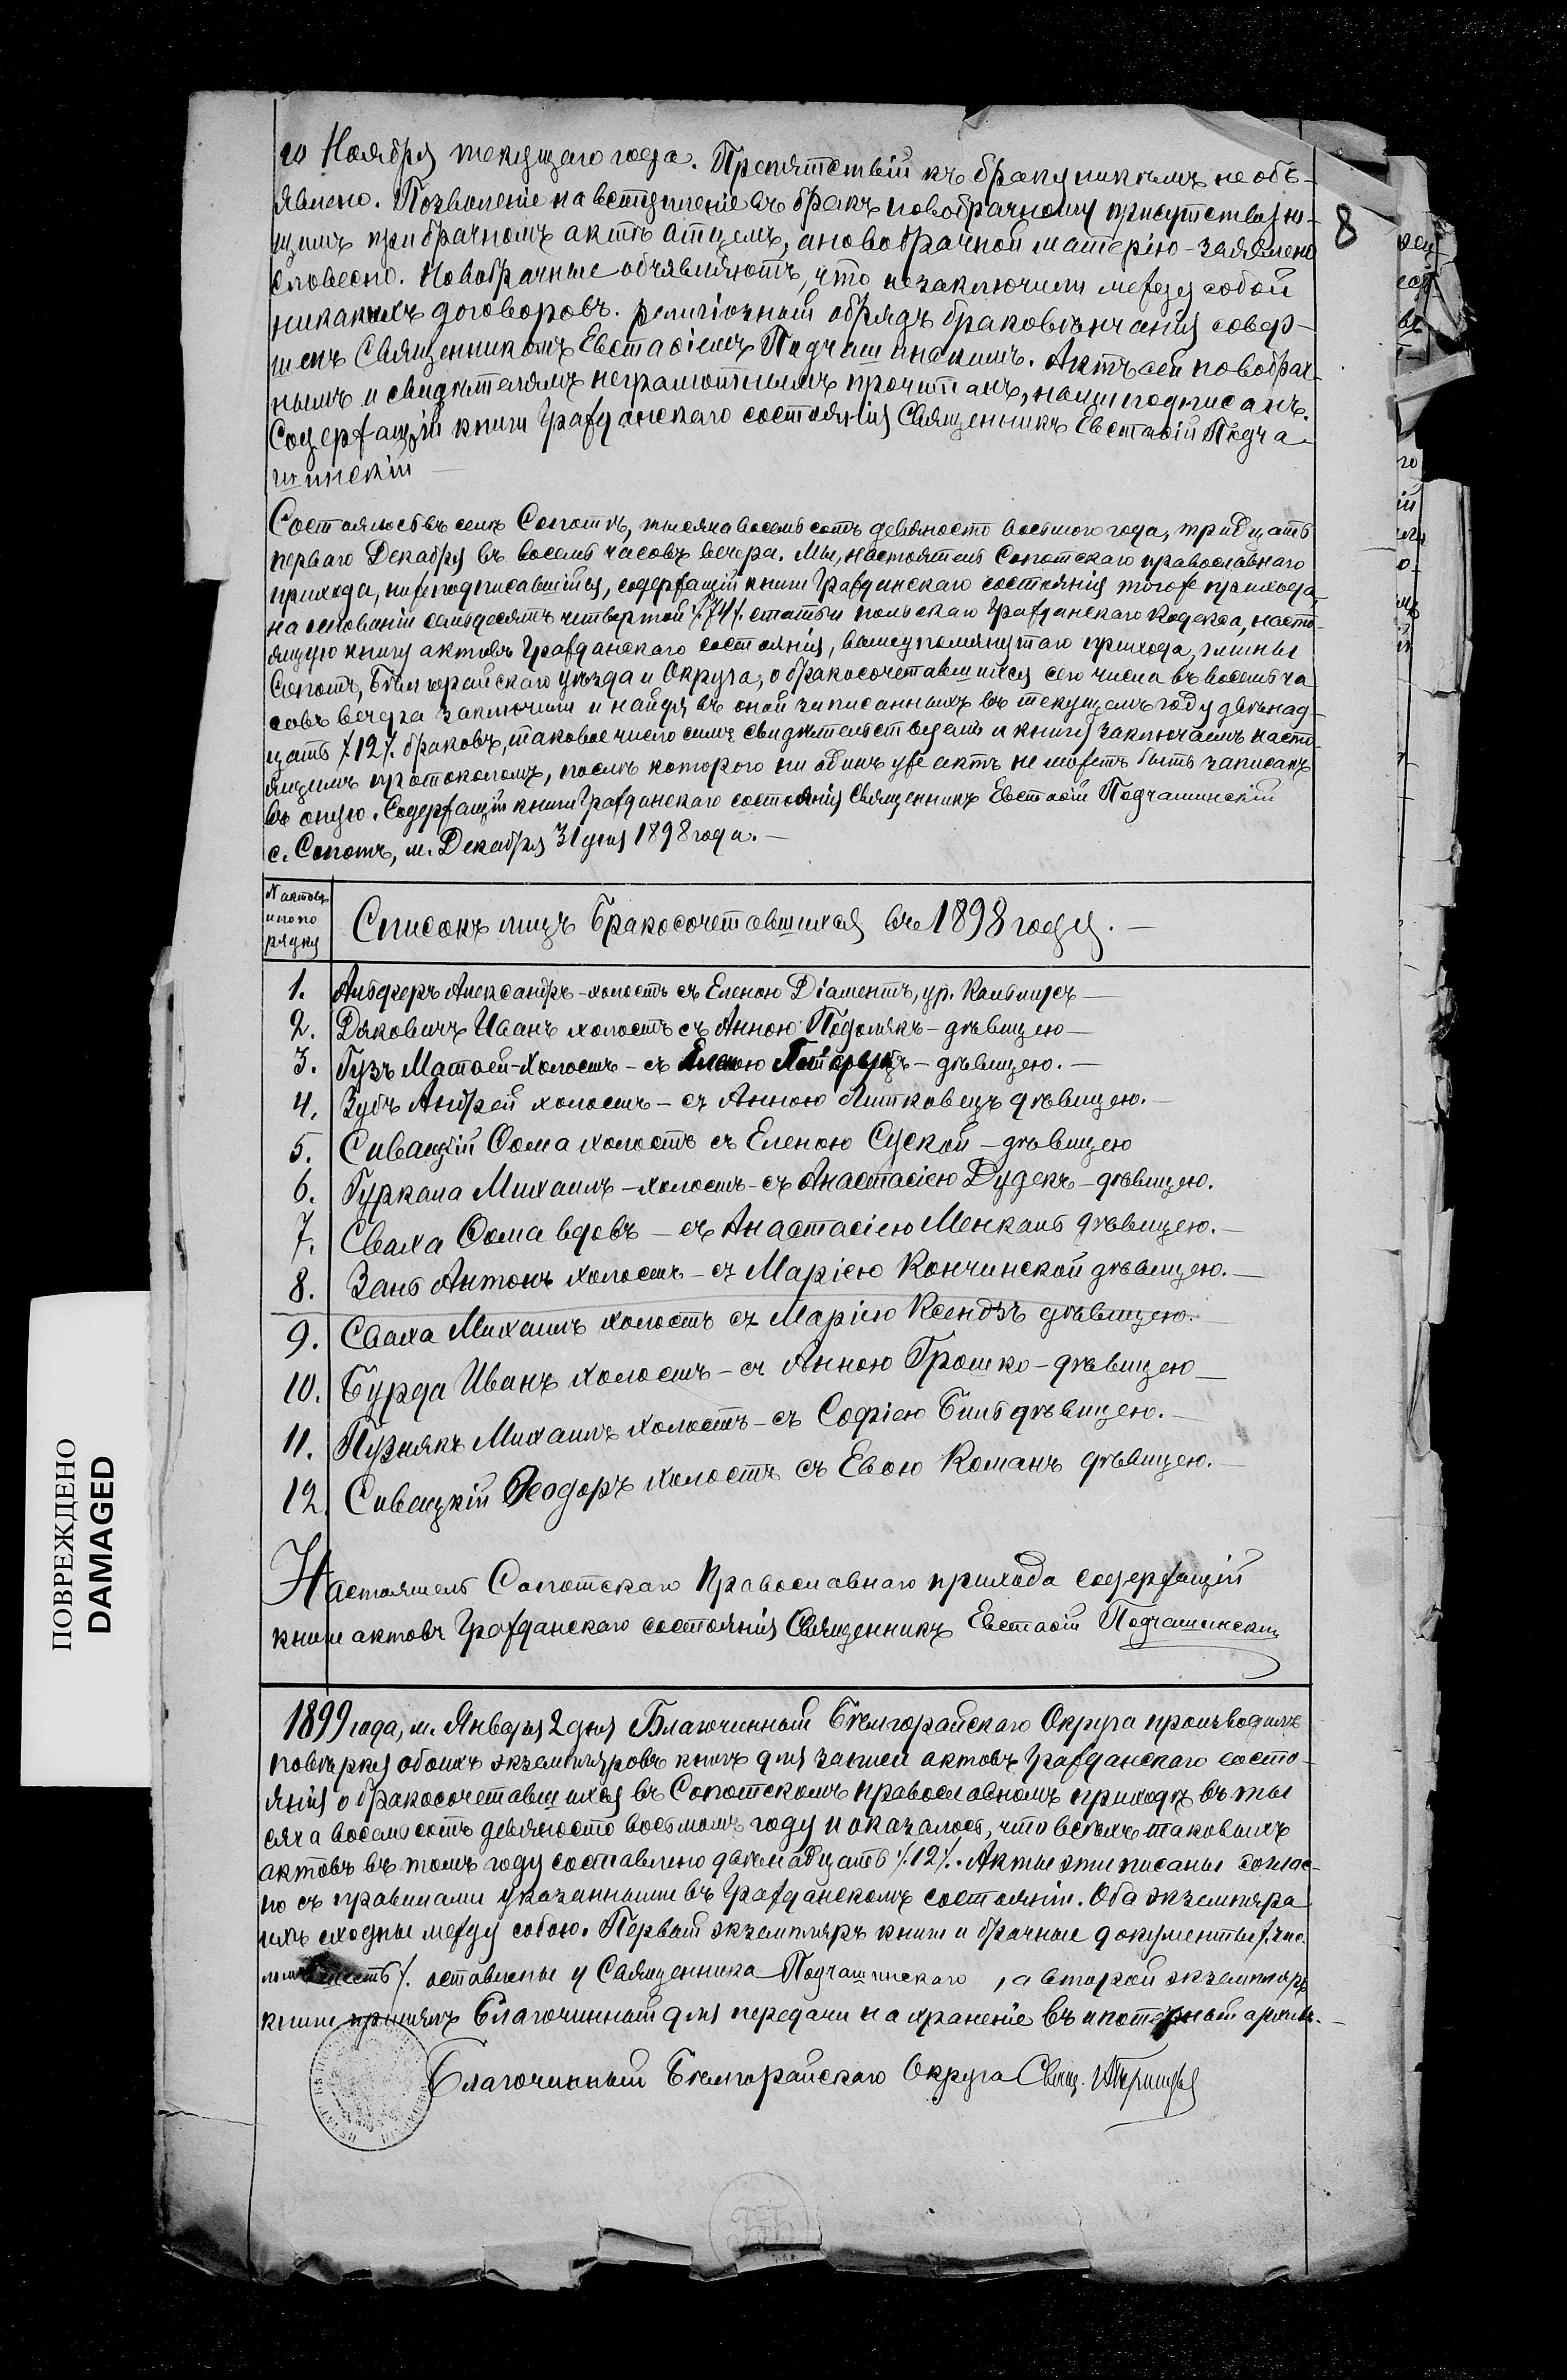 го Ноября текущаго года. Препятствій къ браку никѣмъ не объ-
явлено. Позволеніе на вступленіе въ бракъ новобрачному присутствую-
щимъ при брачномъ актѣ отцемъ, а новобрачной матерію - заявлено
словесно. Новобрачные объявляютъ, что незаключили между собой
никакихъ договоровъ. религіозный обрядъ браковѣнчанія совер-
шенъ Священникомъ Евстаѳіемъ Подчашинскимъ. Актъ сей новобрач-
нымъ и свидѣтелямъ неграмотнымъ прочитанъ, нами подписанъ.
Содержащій книги Гражданскаго состоянія Священникъ Евстаѳій Подча-
шинскій —
Состоялось въ селѣ Сопотѣ, тысяча восемьсотъ девяносто восьмого года, тридцать
перваго Декабря въ восемь часовъ вечера. Мы, настоятель Сопотскаго православнаго
прихода, нижеподписавшійся, содержащій книги Гражданскаго состоянія тогоже прихода,
на основаніи семьдесятъ четвертой /.74/. статьи польскаго Гражданскаго Кодекса, насто-
ящую книгу актовъ Гражданскаго состоянія, вышеупомянутаго прихода, гмины
Сопотъ, Бѣлгорайскаго уѣзда и Округа, о бракосочетавшихся сего числа въ восемь ча
совъ вечера заключили и найдя въ оной записанныхъ въ текущемъ году двѣнад-
цать /.12/. браковъ, таковое число симъ свидѣтельствуемъ и книгу заключаемъ насто-
ящимъ протоколомъ, послѣ которого ни одинъ уже актъ не можетъ быть записанъ
въ оную. Содержащій книги Гражданскаго состоянія Священникъ Евстаѳій Подчашинскій
с. Сопотъ, м. Декабря 31 дня 1898 года. —
N актовъ
ипопо
рядку
Списокъ лицъ бракосочетавшихся въ 1898 году. —
1. Альферъ Александръ - холостъ съ Еленою Діаментъ, ур. —
2. Дяковичъ Иванъ холостъ съ Анною Подолякъ - дѣвицею —
3. Гузъ Матѳей - Холостъ - съ - дѣвицею. —
4. Зубъ Андрей холостъ - съ Анною Литковецъ дѣвицею. —
5. Сивацкій Ѳома холостъ съ Еленою Суской - дѣвицею
6. Гуркала Михаилъ - холостъ - съ Анастасіею Дудекъ - дѣвицею.
7. Сваха Ѳома вдовъ - съ Анастасіею Менкаль дѣвицею. —
8. Зань Антонъ холостъ - съ Маріею Кончинской дѣвицею. —
9. Сваха Михаилъ холостъ съ Маріею Ксендзъ дѣвицею. —
10. Бурда Иванъ холостъ - съ Анною Грошко - дѣвицею —
11. Пузнякъ Михаилъ холостъ - съ Софіею Биль дѣвицею. —
12. Сивацкій Ѳеодоръ холостъ съ Евою Команъ дѣвицею. —
Настоятель Сопотскаго Православнаго прихода содержащій
книги актовъ Гражданскаго состоянія Священникъ Евстаѳій Подчашинскій
1899 года, м. Января 2 дня Благочинный Бѣлгорайскаго Округа производилъ
повѣрку обоихъ экземпляровъ книгъ для записи актовъ Гражданскаго состо-
янія о бракосочетавшихся въ Сопотскомъ православномъ приходѣ въ ты
сяча восемьсотъ девяносто восьмомъ году и оказалось, что всѣхъ таковыхъ
актовъ въ томъ году составлено двѣнадцать /.12/. Акты эти писаны соглас-
но съ правилами указанными въ Гражданскомъ состояніи. Оба экземпляра
ихъ сходны между собою. Первый экземпляръ книги и брачные документы /.чис
ломъ шесть/. оставлены у Священника Подчашинскаго, а второй экземпляръ
книги принялъ Благочинный для передачи на храненіе въ ипотечный архивъ. —
Благочинный Бѣлгорайскаго Округа Свящ.
8
ПОВРЕЖДЕНО
DAMAGED